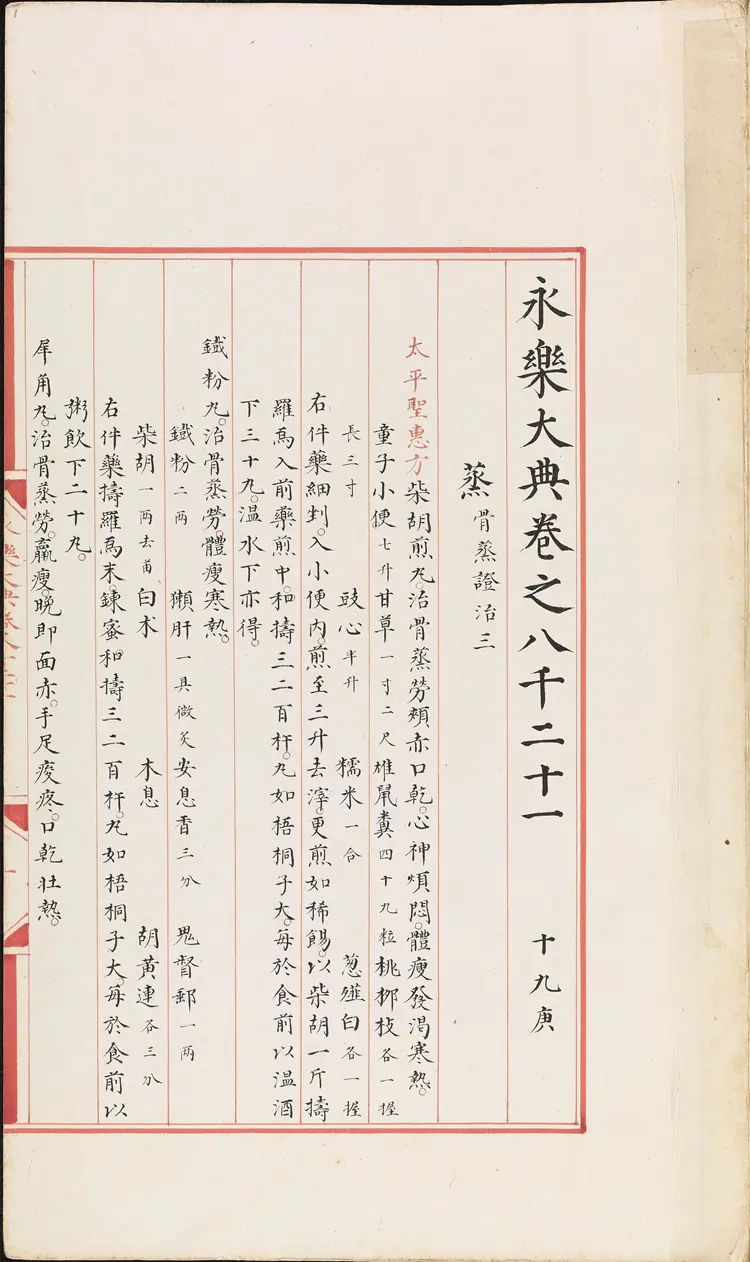 永樂大典卷之八千二十一 十九庚
蒸 骨蒸證治三
太平聖惠方柴胡煎丸。治骨蒸勞。頰赤口乾。心神煩悶。體瘦發渴寒熱。
童子小便七升甘草一寸二尺雄鼠糞四十九粒桃柳枝各一握
長三寸 豉心半升 糯米一合 葱薤白各一握
右件藥細剉。入小便內。煎至三升去滓。更煎如稀餳。以柴胡一斤擣
羅爲入前藥煎中。和擣三二百杵。丸如梧桐子大。每於食前以溫酒
下三十丸。溫水下亦得。
鐵粉丸。治骨蒸勞。體瘦寒熱。
鐵粉二兩 獺肝一具微炙安息香三分 鬼督郵一兩
柴胡一兩去苗白术 木息 胡黃連各三分
右件藥擣羅爲末。鍊蜜和擣三二百杵。丸如梧桐子大。每於食前以
粥飲下二十丸。
犀角丸。治骨蒸勞。羸瘦。晚即面赤。手足痠疼。口乾壯熱。